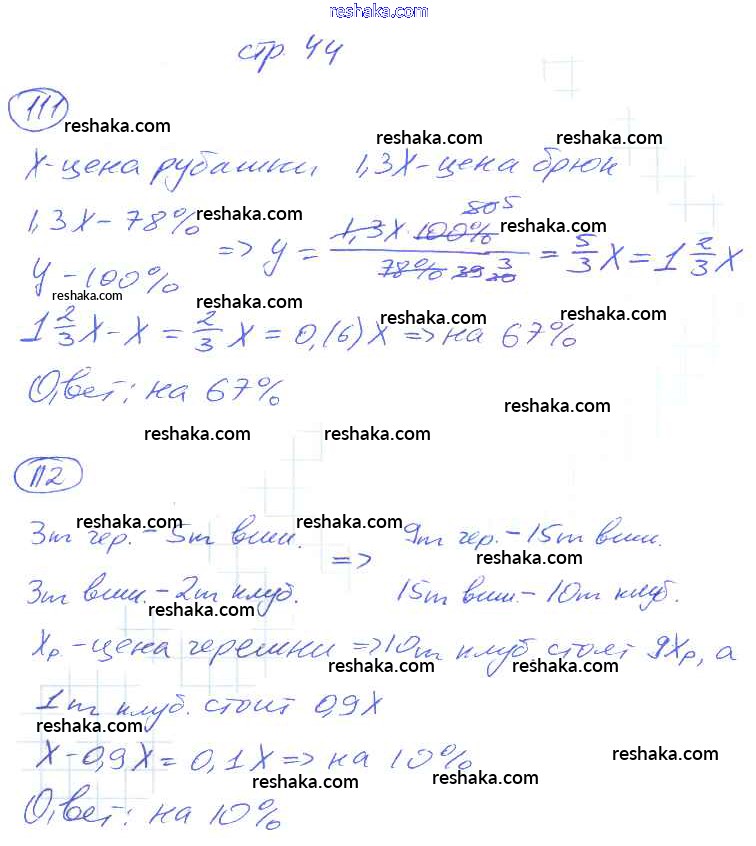 reshaka.com
стр. 44
111
reshaka.com
reshaka.com reshaka.com
X-цена рубашки, 1,3X-цена брюк
1,3X - 78% reshaka.com
y - 100% => y = 1,3X·100% 80 5 / 78% 39 30 3 = 5/3 X = 1 2/3 X
reshaka.com
reshaka.com reshaka.com
1 2/3 X - X = 2/3 X = 0,(6)X => на 67%
reshaka.com
Ответ: на 67%
reshaka.com
reshaka.com reshaka.com
112
reshaka.com reshaka.com
3т чер. - 5т виш. => 9т чер. - 15т виш.
reshaka.com
3т виш. - 2т клуб. 15т виш - 10т клуб.
reshaka.com
Xр - цена черешни => 10т клуб стоят 9Xр, а
reshaka.com reshaka.com
1т клуб. стоит 0,9X
reshaka.com
X - 0,9X = 0,1X => на 10%
reshaka.com
reshaka.com reshaka.com
Ответ: на 10%